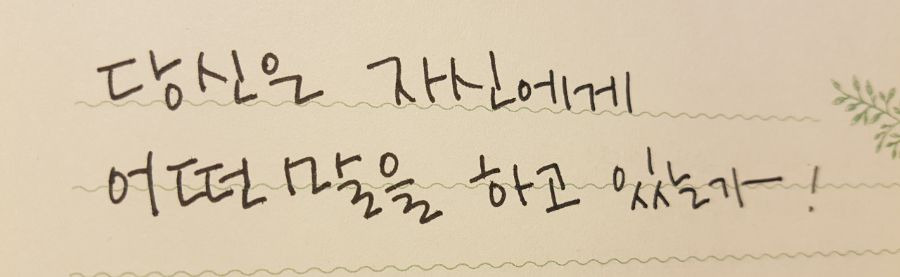 당신은 자신에게
어떤 말을 하고 있는가!